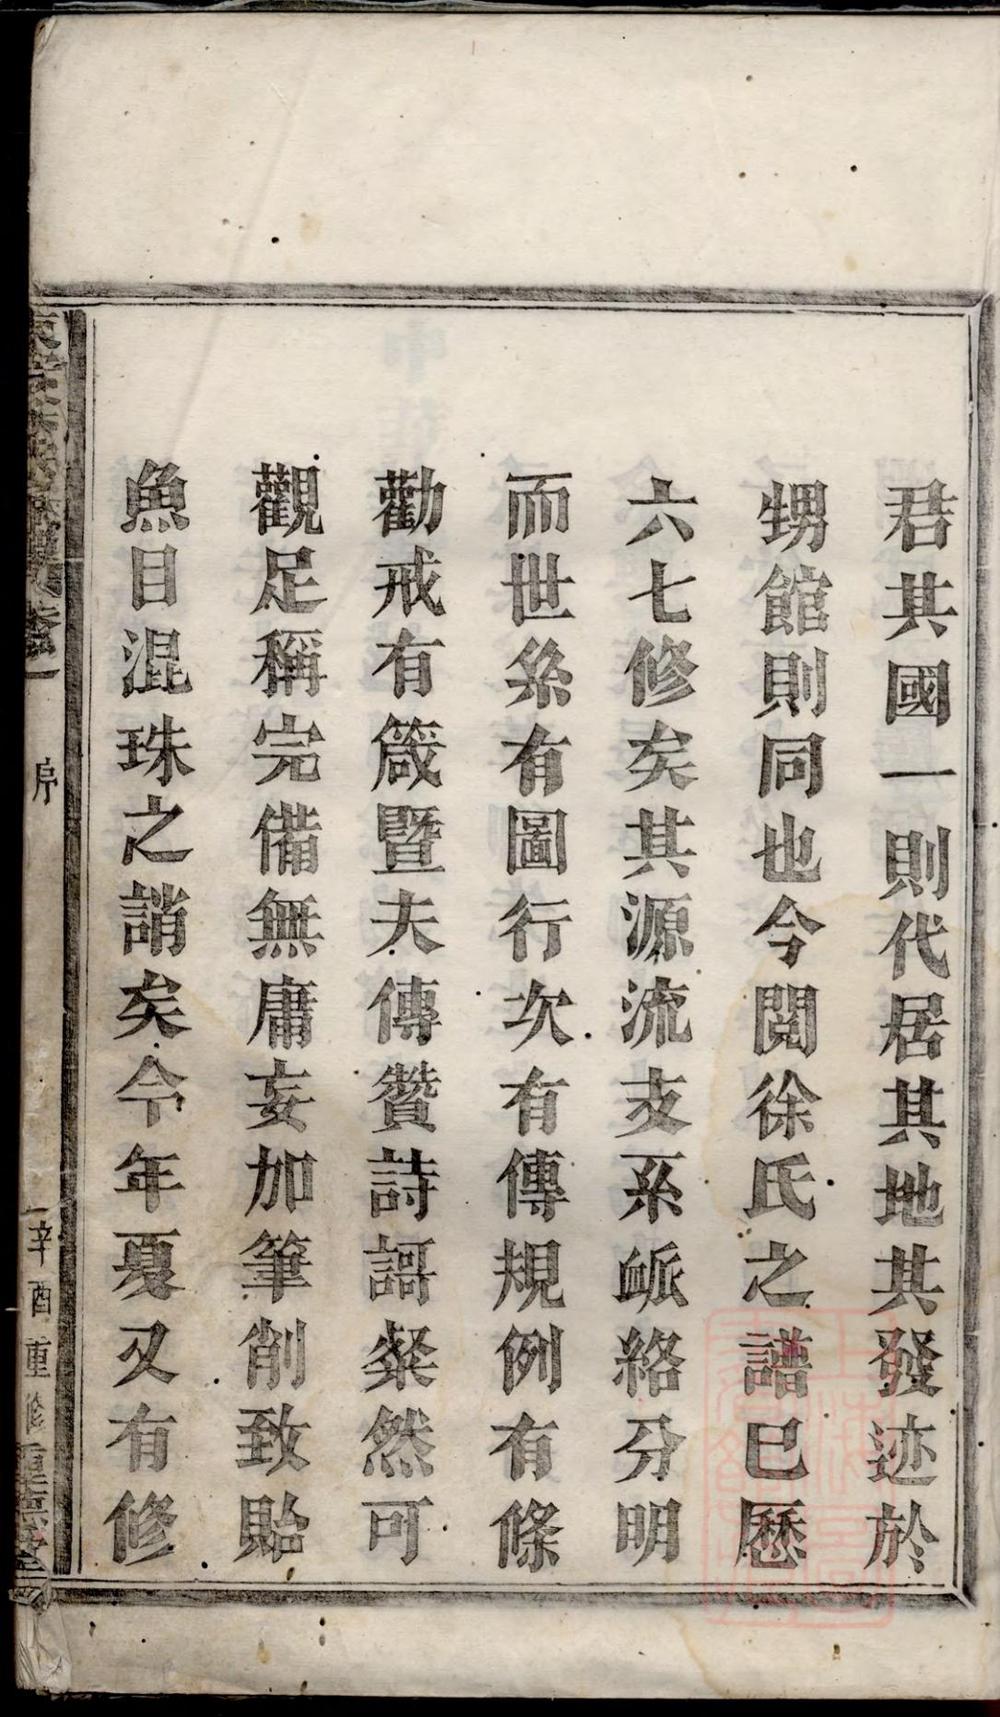 君其國一則代居其地其發迹於
甥館則同也今閱徐氏之譜已歷
六七修矣其源流支系衇絡分明
而世系有圖行次有傳規例有條
勸戒有箴暨夫傳贊詩謌粲然可
觀足稱完備無庸妄加筆削致貽
魚目混珠之誚矣今年夏又有修
序
辛酉重修